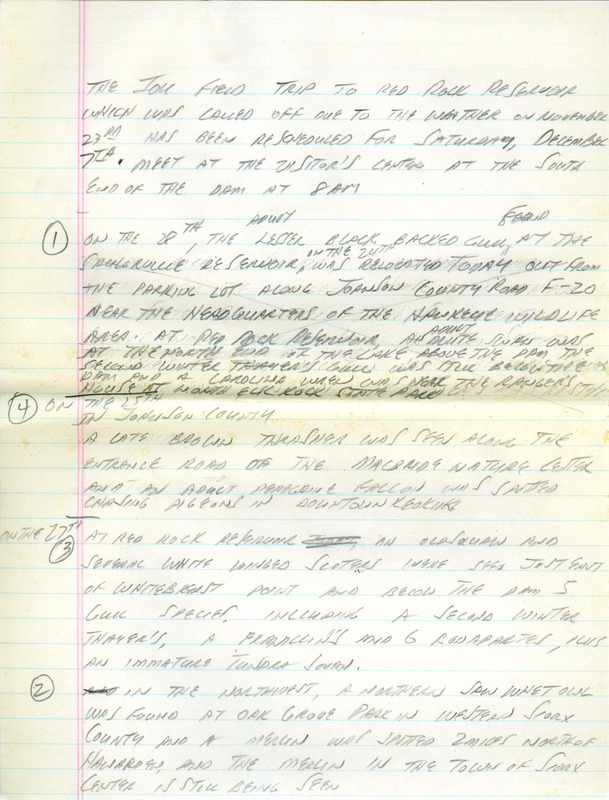 THE IOU FIELD TRIP TO RED ROCK RESERVOIR
WHICH WAS CALLED OFF DUE TO THE WEATHER ON NOVEMBER
23RD HAS BEEN RESCHEDULED FOR SATURDAY, DECEMBER
7TH. MEET AT THE VISITOR'S CENTER AT THE SOUTH
END OF THE DAM AT 8AM
ADULT FOUND
1 ON THE 28TH, THE LESSER BLACK BACKED GULL, AT THE
ON THE 24TH
RESERVOIR, WAS RELOCATED TODAY OUT FROM
THE PARKING LOT ALONG JOHNSON COUNTY ROAD F-20
NEAR THE HEADQUARTERS OF THE HAWKEYE WILDLIFE
ADULT
AREA. AT RED ROCK RESERVOIR, A MUTE SWAN WAS
AT THE NORTH END OF THE LAKE ABOVE THE DAM, THE
SECOND WINTER THAYER'S GULL WAS STILL BELOW THE
DAM AND A CAROLINA WREN WAS NEAR THE RANGER'S
HOUSE AT NORTH ELK ROCK STATE PARK
4 ON THE 25TH
IN JOHNSON COUNTY
A LATE BROWN THRASHER WAS SEEN ALONG THE
ENTRANCE ROAD OF THE MACBRIDE NATURE CENTER
AND AN ADULT PEREGRINE FALCON WAS SPOTTED
CHASING PIGEONS IN DOWNTOWN KEOKUK
ON THE 27TH
3 AT RED ROCK RESERVOIR, AN OLDSQUAW AND
SEVERAL WHITE WINGED SCOTERS WERE SEEN JUST EAST
OF WHITEBREAST POINT AND BELOW THE DAM 5
GULL SPECIES, INCLUDING A SECOND WINTER
THAYER'S, A FRANKLIN'S AND 6 BONAPARTES, PLUS
AN IMMATURE TUNDRA SWAN.
2 IN THE NORTHWEST, A NORTHERN SAW WHET OWL
WAS FOUND AT OAK GROVE PARK IN WESTERN SIOUX
COUNTY AND A MERLIN WAS SPOTTED 2 MILES NORTH OF
HAWARDEN, AND THE MERLIN IN THE TOWN OF SIOUX
CENTER IS STILL BEING SEEN